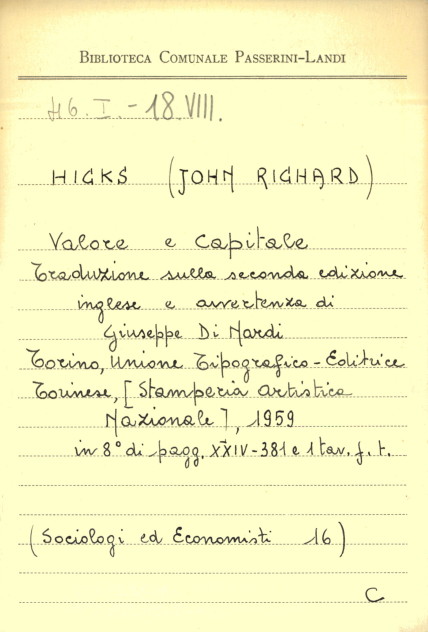 BIBLIOTECA COMUNALE PASSERINI-LANDI
46. I. - 18. VIII.
HICKS (JOHN RICHARD)
Valore e Capitale
Traduzione sulla seconda edizione
inglese e avvertenza di
Giuseppe Di Nardi
Torino, Unione Tipografico-Editrice
Torinese, [Stamperia Artistica
Nazionale], 1959
in 8° di pagg. XXIV-381 e 1 tav. f. t.
(Sociologi ed Economisti 16)
C